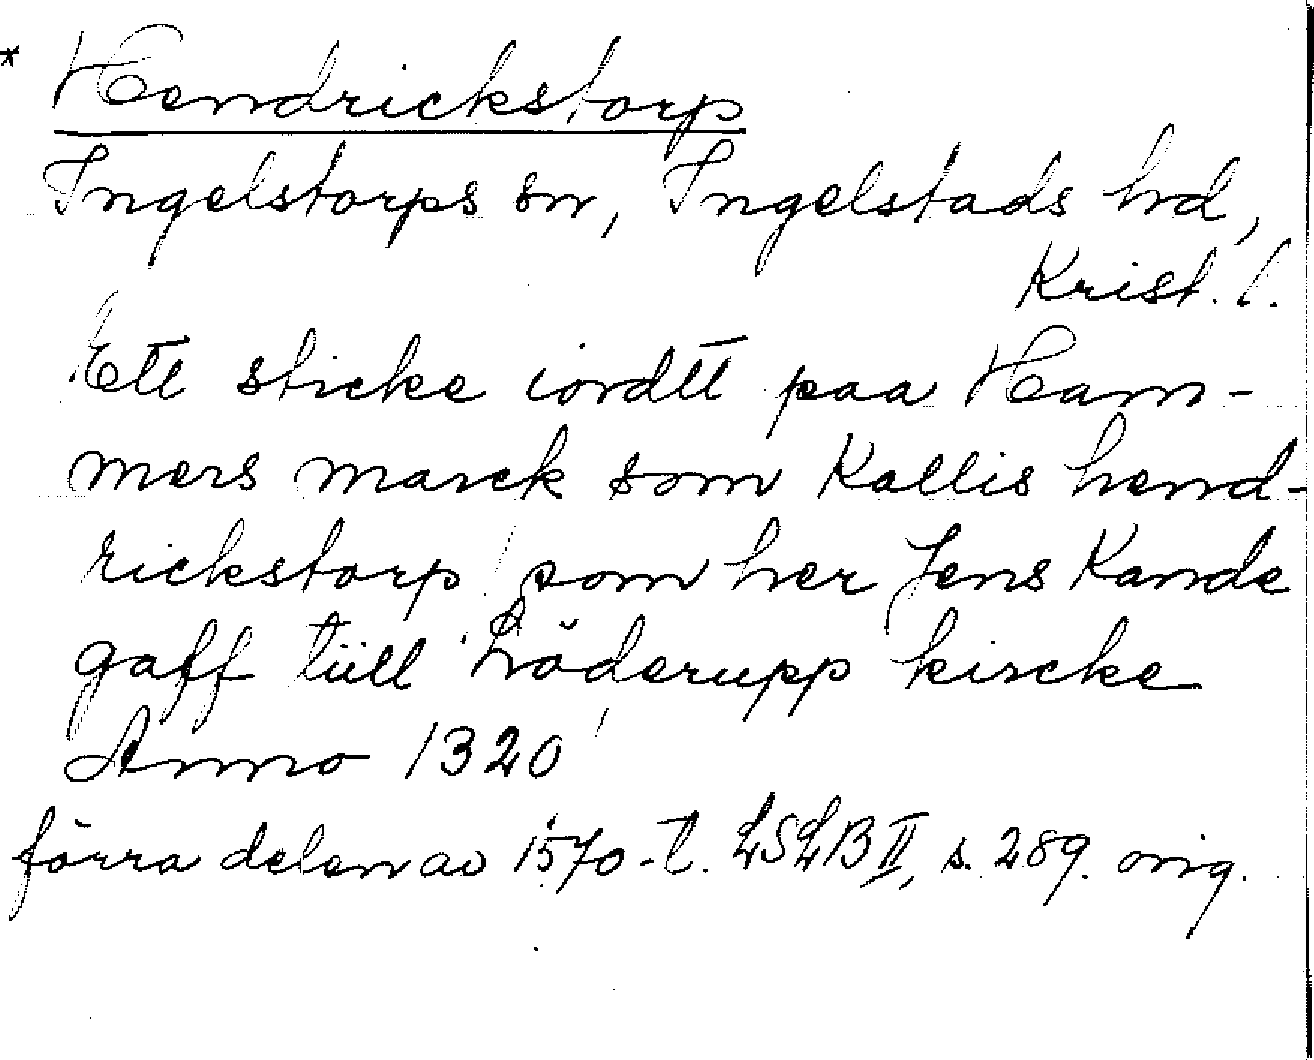 * Hendrickstorp
Ingelstorps sn, Ingelstads hd,
Krist. l.
Ett sticke iordtt paa Ham-
mers marck som Kallis hend-
rickstorp som her Jens Kande
gaff tüll Löderupp kircke
Anno 1320
förra delen av 1570-t. LSLB II, s. 289. orig.